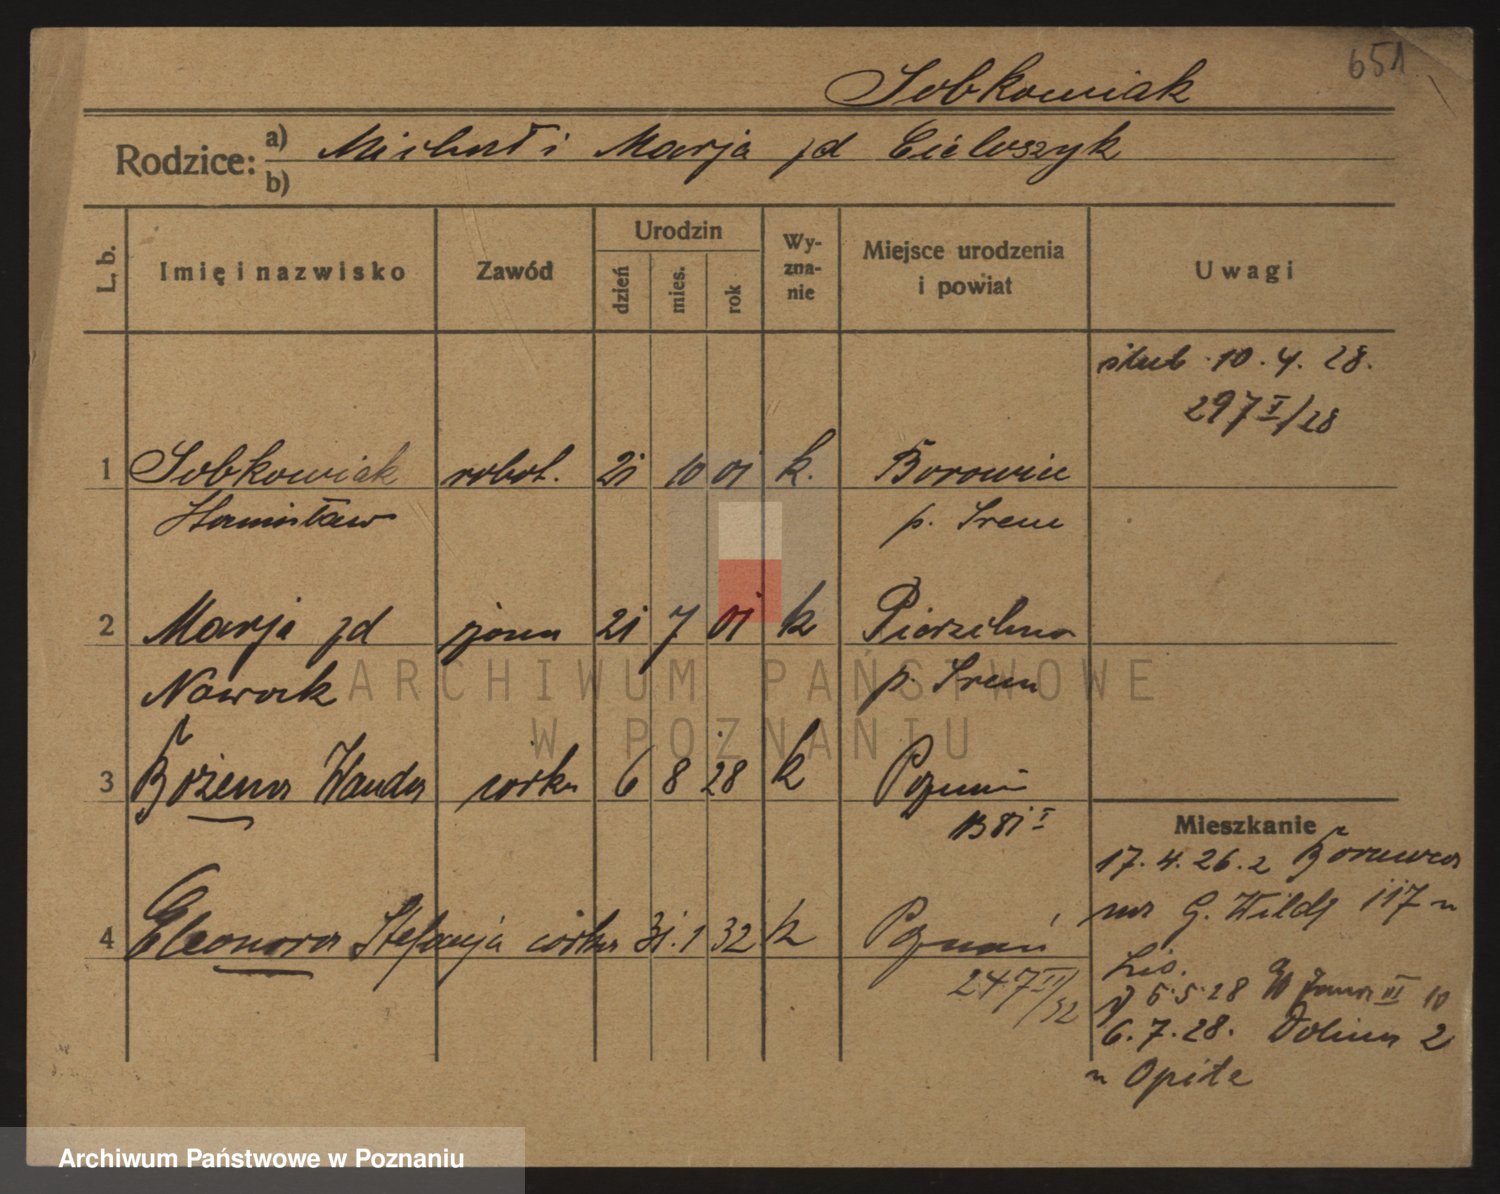 651
Sobkowiak
Rodzice: a) Michał i Marja zd
b)
L. b. Imię i nazwisko Zawód Urodzin dzień mies. rok Wy-zna-nie Miejsce urodzenia i powiat Uwagi
ślub 10.4.28.
297 I/28
1 Sobkowiak robot. 21 10 01 k. Borowiec
Stanisław p. Śrem
2 Marja zd żona 21 7 01 k
Nowak p. Śrem
ARCHIWUM PAŃSTWOWE
W POZNANIU
3 Bożena Wanda córka 6 8 28 k Poznań
Mieszkanie
17.4.26. z
na G. Wildę 117 u
4 Eleonora Stefanja córka 31.1 32 k Poznań
247 III/32
5.5.28 Jana III 10
6.7.28. Dolina 2
u Opita
Archiwum Państwowe w Poznaniu